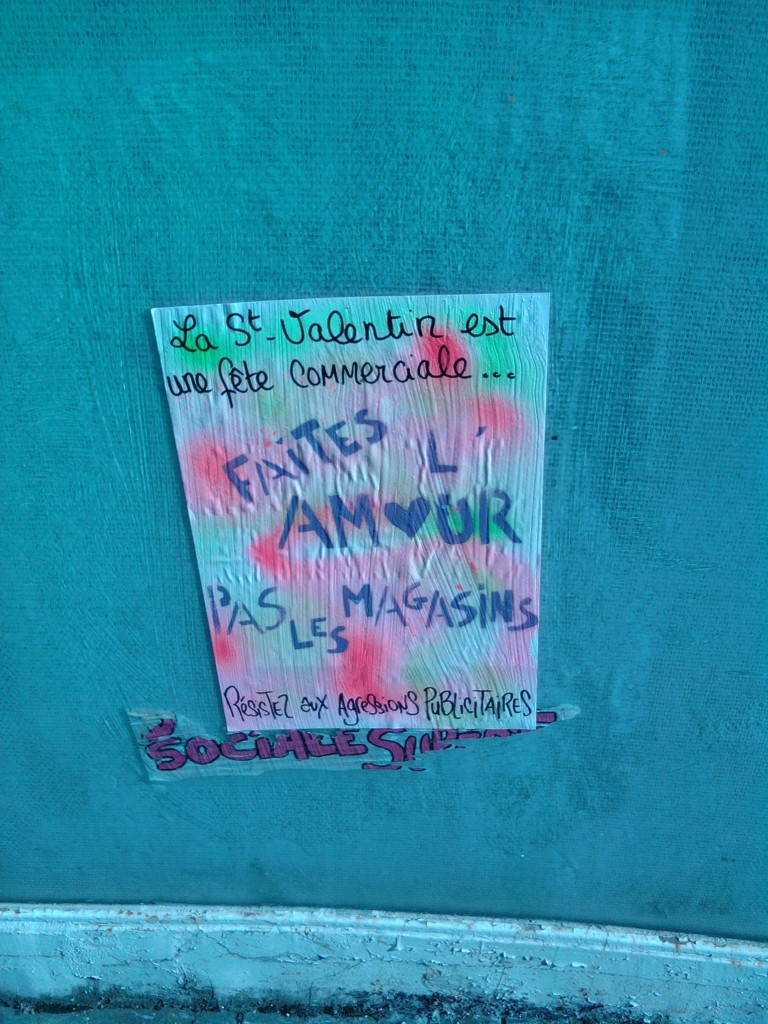 La St-Valentin est
une fête commerciale...
FAITES L'
AM♥UR
PAS LES MAGASINS
Résistez aux Agressions PUBLICITAIRES
SOCIALE